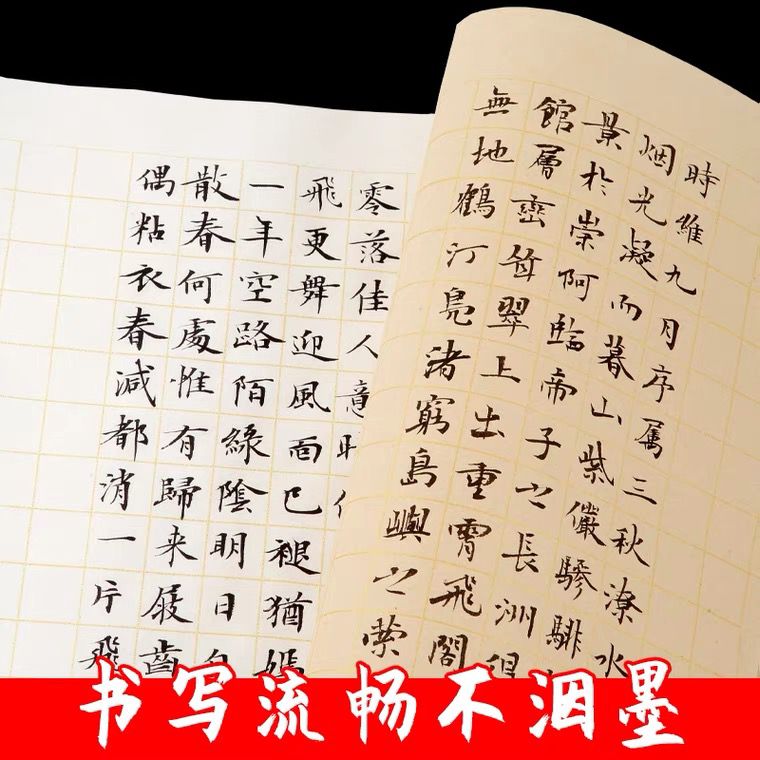 時維九月序属三秋潦水
烟光凝而暮山紫儼驂騑
景於崇阿臨帝子之長洲得
館層巒耸翠上出重霄飛閣
無地鶴汀鳧渚窮島嶼之縈
零落佳人意
飛更舞迎風面已褪猶嫣
一年空路陌緑陰明日
散春何處惟有歸来屐齒
偶粘衣春減都消一片飛
书写流畅不洇墨